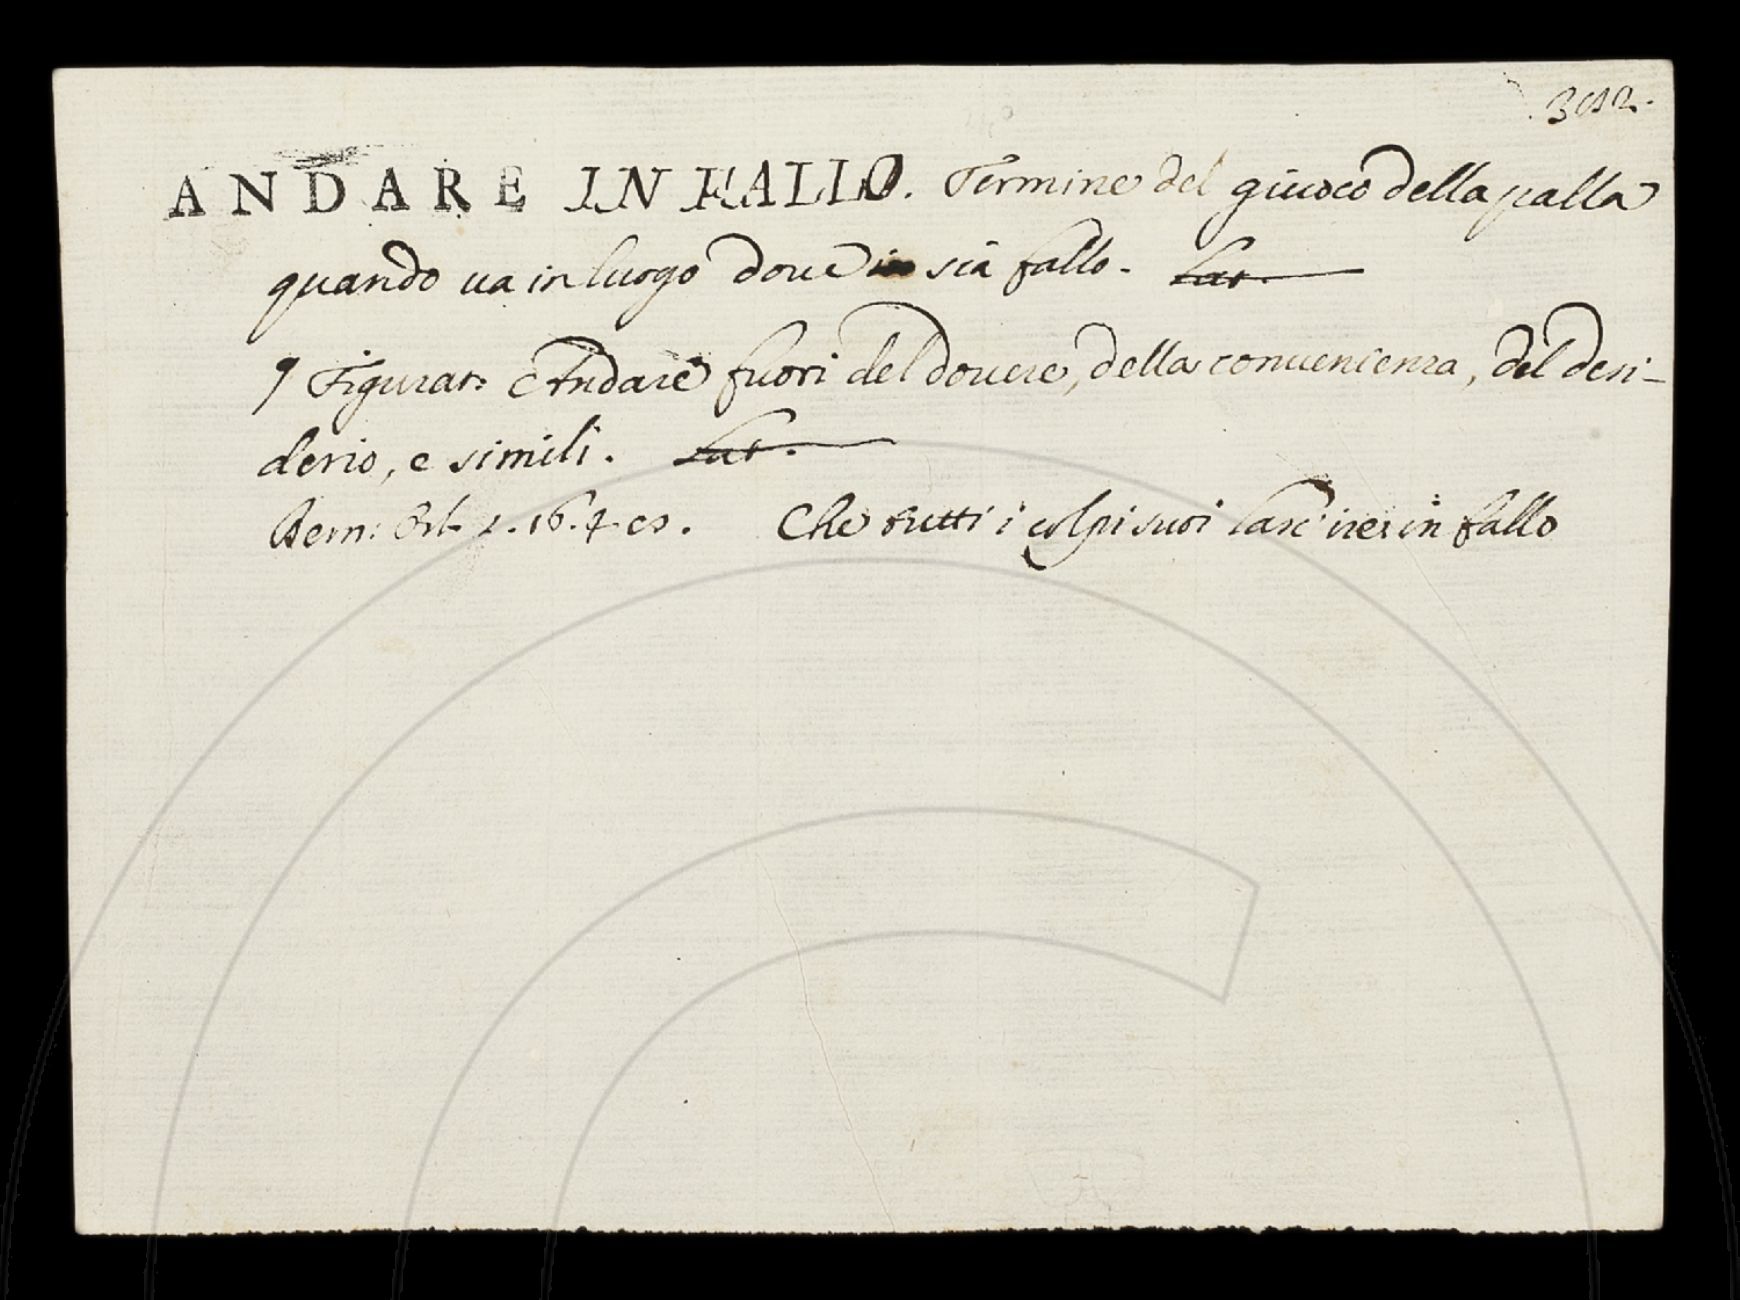 ANDARE IN FALLO. Termine del giuoco della palla
quando va in luogo dove sia fallo. Lat.
¶ Figurat: Andare fuori del dovere, della convenienza, del desi-
derio, e simili. Lat.
Bern: Orl. 1. 16. Che tutti i colpi suoi in fallo